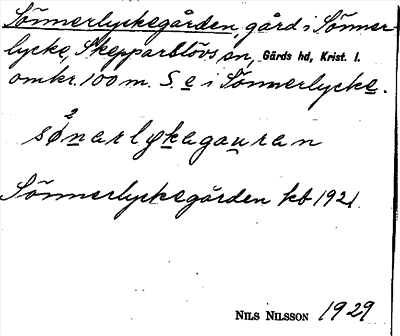 Sönnerlyckegården, gård i Sönner-
lycke, Skepparslövs sn, Gärds hd, Krist. l.
omkr. 100 m. S. e i Sönnerlycke.
sø²narlykagauran
Sönnerlyckegården kb 1921.
NILS NILSSON 1929